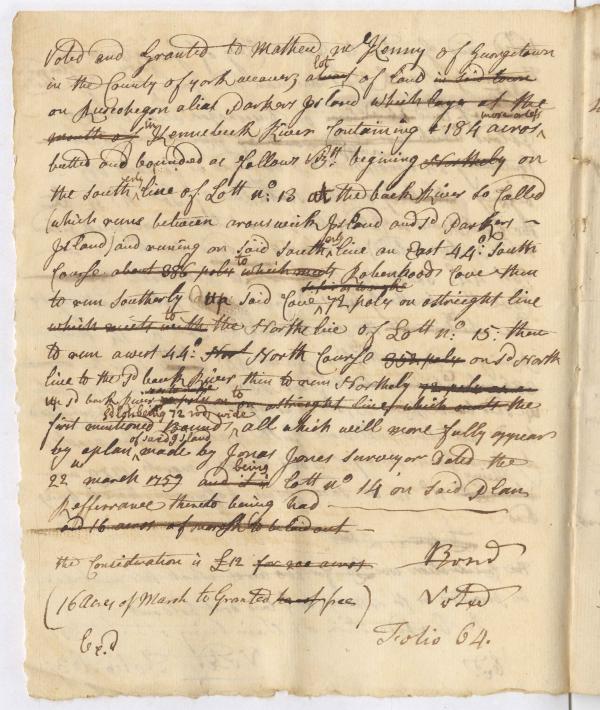 Voted and Granted to Mathew mc Kenny of Georgetown
in the County of york a Lot of Land in said town
on Ruscohegon alias Parkers Island which layes at the
mouth of in Kennebeck River Containing 184 acres more or less
butted and bounded as follows Viz.t begining Northerly on
the southerly line of Lott no. 13 at the back River so Called
(which runs between arouswick Island and sd Parkers
Island) and runing on said southerly line an East 44.o South
Course about 386 poles to which meets Robenhoods Cove then
to run southerly up said Cove 72 poles on a straight line
which meets with to the North line of Lott no. 15. then
to run a west 44.o North Course 352 poles on sd North
line to the sd back River then to run Northerly 72 poles
up sd back River on a straight line which meets the
sd Lot being 72 rod wide
first mentioned Bounds all which will more fully appear
by a plan of said Island made by Jonas Jones surveyor Dated the
22 march 1759 and is being lott no 14 on said Plan
Refferrance thereto being had
and 16 acres of marsh to be laid out
the Consideration is £12 for 200 acres Bond
(16 Acres of Marsh to Granted free) Voted
Ex.d Folio 64.